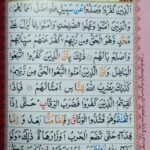 الَّذِينَ كَفَرُوا وَصَدُّوا عَن سَبِيلِ اللَّهِ أَضَلَّ أَعْمَالَهُمْ
وَالَّذِينَ آمَنُوا وَعَمِلُوا الصَّالِحَاتِ وَآمَنُوا بِمَا نُزِّلَ عَلَىٰ
مُحَمَّدٍ وَهُوَ الْحَقُّ مِن رَّبِّهِمْ كَفَّرَ عَنْهُمْ سَيِّئَاتِهِمْ
وَأَصْلَحَ بَالَهُمْ ذَٰلِكَ بِأَنَّ الَّذِينَ كَفَرُوا اتَّبَعُوا
الْبَاطِلَ وَأَنَّ الَّذِينَ آمَنُوا اتَّبَعُوا الْحَقَّ مِن رَّبِّهِمْ
كَذَٰلِكَ يَضْرِبُ اللَّهُ لِلنَّاسِ أَمْثَالَهُمْ فَإِذَا لَقِيتُمُ
الَّذِينَ كَفَرُوا فَضَرْبَ الرِّقَابِ حَتَّىٰ إِذَا
أَثْخَنتُمُوهُمْ فَشُدُّوا الْوَثَاقَ فَإِمَّا مَنًّا بَعْدُ وَإِمَّا
فِدَاءً حَتَّىٰ تَضَعَ الْحَرْبُ أَوْزَارَهَا ذَٰلِكَ